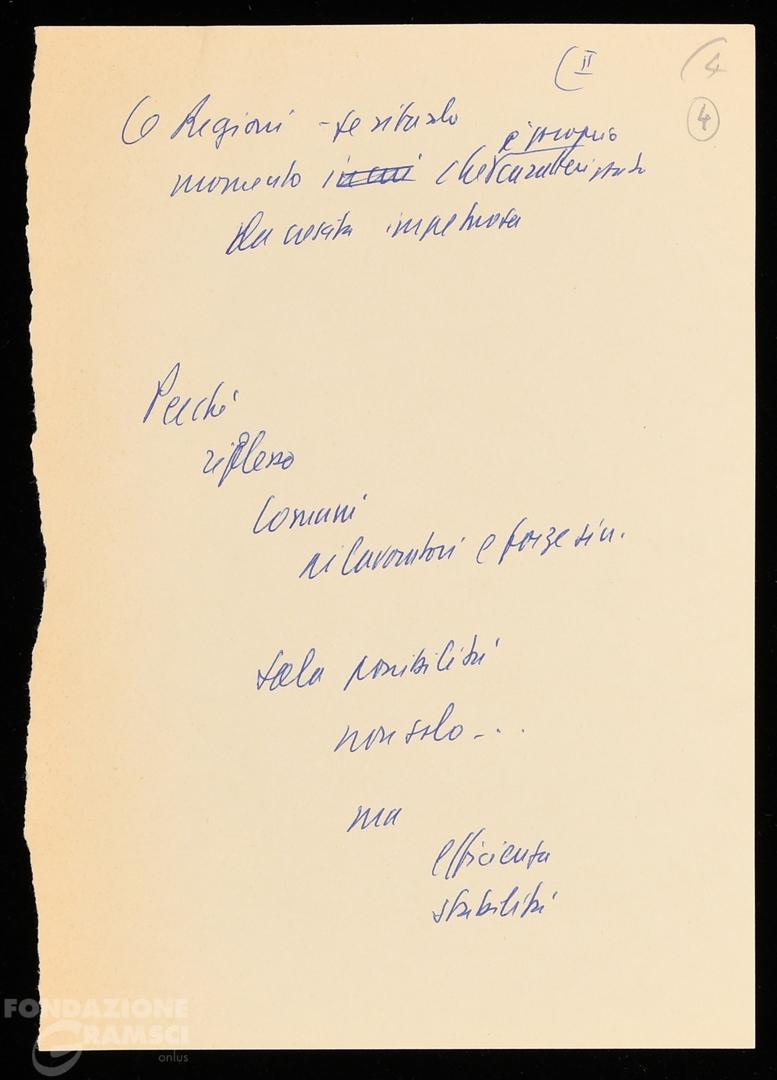 (II
(4
4
Regioni -
è proprio
momento in cui che caratterizzato
da crescita impetuosa
Perché
riflesso
Comuni
lavoratori e forze sin.
sola possibilità
non solo - ..
ma
efficienza
stabilità
FONDAZIONE
GRAMSCI
onlus